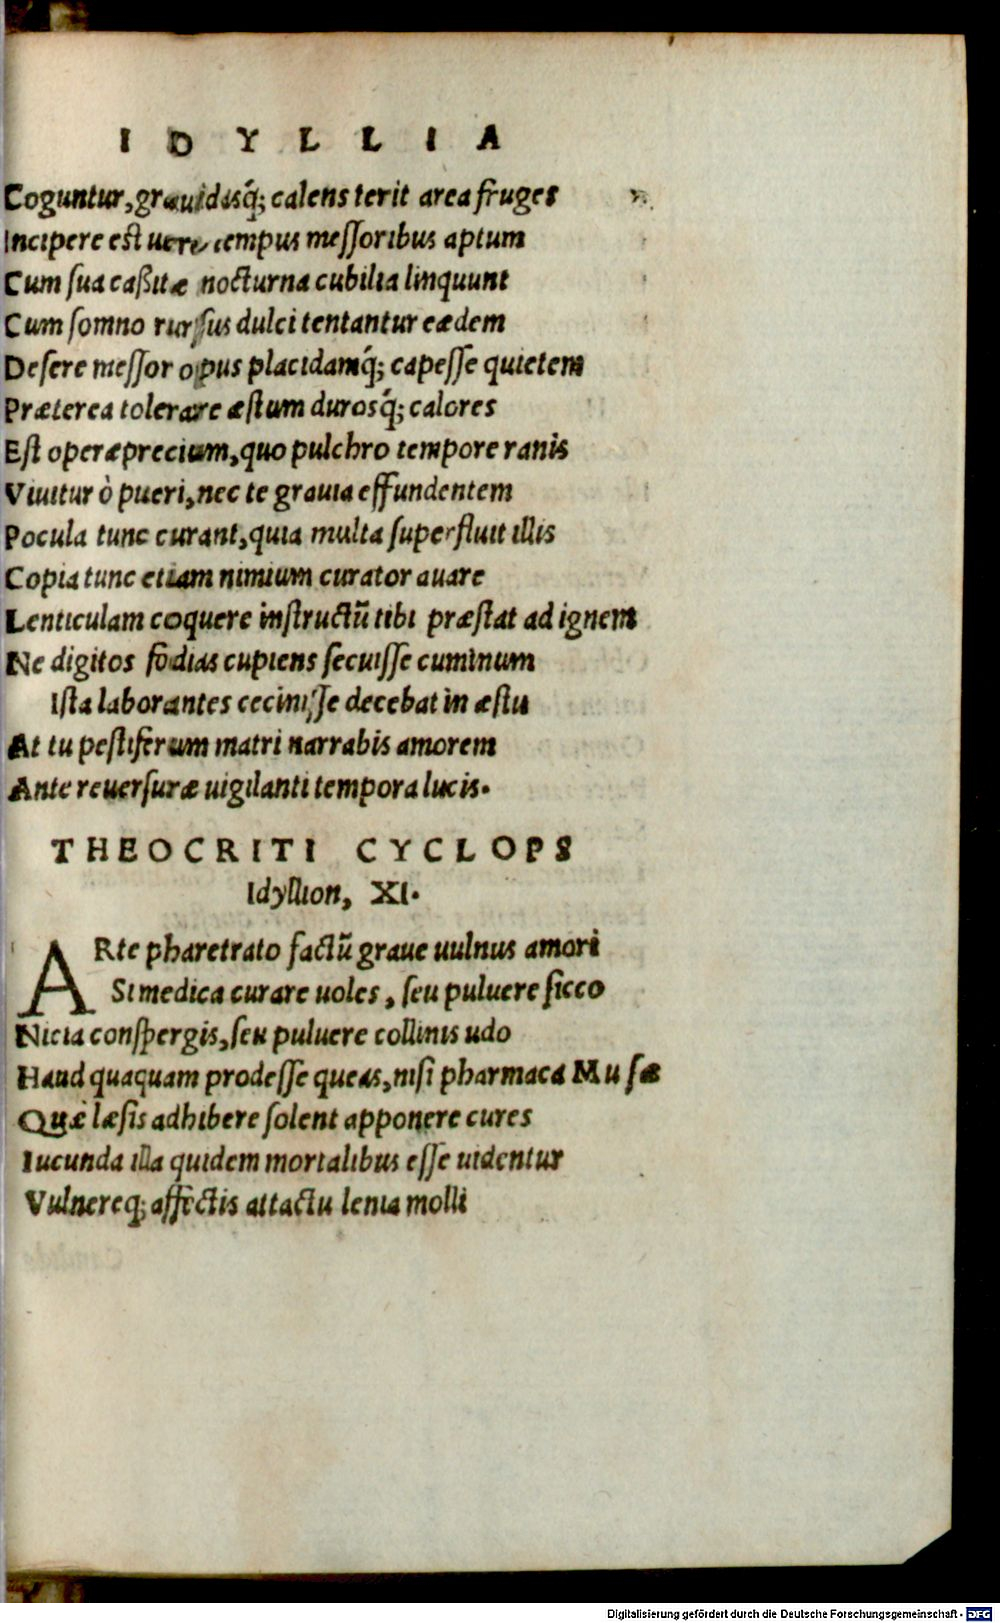 IDYLLIA
Coguntur, grauidasq́; calens terit area fruges
Incipere est uero tempus messoribus aptum
Cum sua caßitæ nocturna cubilia linquunt
Cum somno rursus dulci tentantur eædem
Desere messor opus placidamq́; capesse quietem
Præterea tolerare æstum durosq́; calores
Est operæprecium, quo pulchro tempore ranis
Viuitur ò pueri, nec te grauia effundentem
Pocula tunc curant, quia multa superfluit illis
Copia tunc etiam nimium curator auare
Lenticulam coquere instructũ tibi præstat ad ignem
Ne digitos fodias cupiens secuisse cuminum
Ista laborantes cecinisse decebat in æstu
At tu pestiferum matri narrabis amorem
Ante reuersuræ uigilanti tempora lucis.
THEOCRITI CYCLOPS
Idyllion, XI.
ARte pharetrato factũ graue uulnus amori
Si medica curare uoles, seu puluere sicco
Nicia conspergis, seu puluere collinis udo
Haud quaquam prodesse queas, nisi pharmaca Musæ
Quæ læsis adhibere solent apponere cures
Iucunda illa quidem mortalibus esse uidentur
Vulnereq; affectis attactu lenia molli
Digitalisierung gefördert durch die Deutsche Forschungsgemeinschaft - DFG